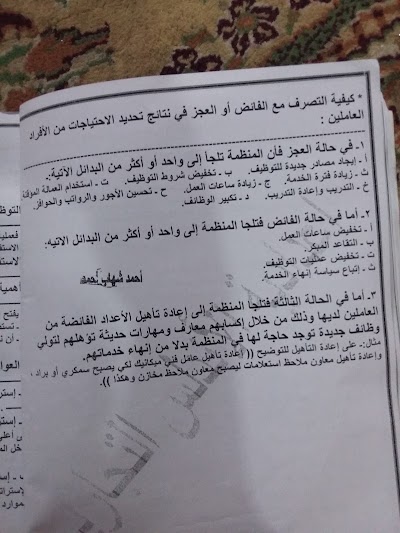 * كيفية التصرف مع الفائض أو العجز في نتائج تحديد الاحتياجات من الأفراد
العاملين :
١- في حالة العجز فأن المنظمة تلجأ إلى واحد أو أكثر من البدائل الآتية:.
أ - إيجاد مصادر جديدة للتوظيف. ب - تخفيض شروط التوظيف. ت - استخدام العمالة المؤقتة
ث - زيادة فترة الخدمة. ج - زيادة ساعات العمل. ح - تحسين الأجور والرواتب والحوافز.
خ - التدريب وإعادة التدريب. د - تكبير الوظائف.
٢- أما في حالة الفائض فتلجأ المنظمة إلى واحد أو أكثر من البدائل الاتيه:
أ - تخفيض ساعات العمل.
ب - التقاعد المبكر.
ت - تخفيض عمليات التوظيف.
ث - إتباع سياسة إنهاء الخدمة.
أحمد شهاب أحمد
٣- أما في الحالة الثالثة فتلجأ المنظمة إلى إعادة تأهيل الأعداد الفائضة من
العاملين لديها وذلك من خلال إكسابهم معارف ومهارات حديثة تؤهلهم لتولي
وظائف جديدة توجد حاجة لها في المنظمة بدلا من إنهاء خدماتهم.
مثال:- على إعادة التأهيل للتوضيح (( إعادة تأهيل عامل فني ميكانيك لكي يصبح سمكري أو براد ,
وإعادة تأهيل معاون ملاحظ استعلامات ليصبح معاون ملاحظ مخازن وهكذا )).